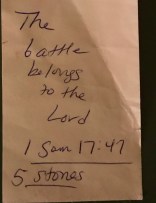 The
battle
belongs
to the
Lord
1 Sam 17:47
5 stones